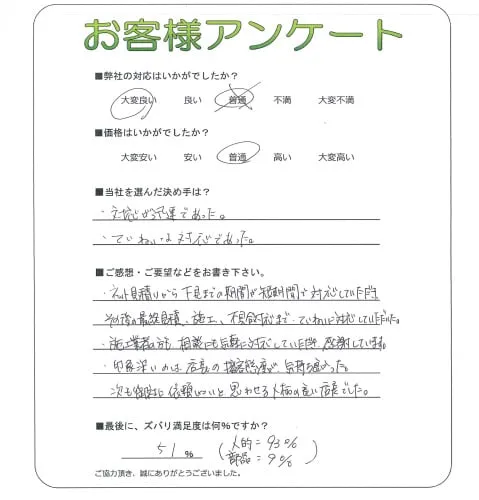 お客様アンケート
■弊社の対応はいかがでしたか?
大変良い 良い 普通 不満 大変不満
■価格はいかがでしたか?
大変安い 安い 普通 高い 大変高い
■当社を選んだ決め手は?
・対応が迅速であった。
・ていねいな対応であった。
■ご感想・ご要望などをお書き下さい。
・ネット見積りから下見までの期間が短期間で対応していただけ
その後の最終見積、施工、不具合対応まで、ていねいに対応していただいた。
・施工業者の方も相談にも気軽に対応していただき、感謝しています。
・印象深いのは店長の接客態度が気持ち良かった。
次も御社に依頼したいと思わせる人柄の良い店長でした。
■最後に、ズバリ満足度は何%ですか?
51 % (人的=93%
部品=9%)
ご協力頂き、誠にありがとうございました。